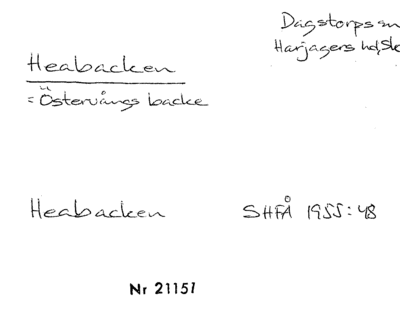 Dagstorps sn
Harjagers hd, Sk
Heabacken
= Östervångs backe
Heabacken SHFÅ 1955:48
Nr 21151